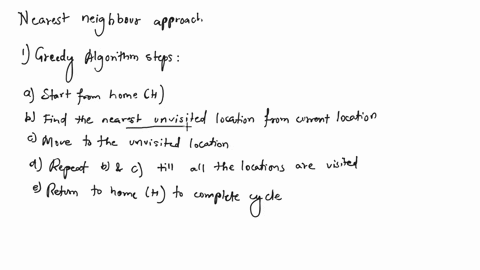 Nearest neighbour approach.
1) Greedy Algorithm steps:
a) Start from home (H)
b) Find the nearest unvisited location from current location
c) Move to the unvisited location
d) Repeat b) & c) till all the locations are visited
e) Return to home (H) to complete cycle